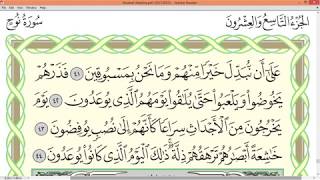 الجُزْءُ التَّاسِعُ وَالعِشْرُونَ
سُورَةُ نُوحٍ
عَلَىٰٓ أَن نُّبَدِّلَ خَيْرًا مِّنْهُمْ وَمَا نَحْنُ بِمَسْبُوقِينَ ٤١ فَذَرْهُمْ
يَخُوضُوا۟ وَيَلْعَبُوا۟ حَتَّىٰ يُلَٰقُوا۟ يَوْمَهُمُ ٱلَّذِى يُوعَدُونَ ٤٢ يَوْمَ
يَخْرُجُونَ مِنَ ٱلْأَجْدَاثِ سِرَاعًا كَأَنَّهُمْ إِلَىٰ نُصُبٍ يُوفِضُونَ ٤٣
خَٰشِعَةً أَبْصَٰرُهُمْ تَرْهَقُهُمْ ذِلَّةٌ ذَٰلِكَ ٱلْيَوْمُ ٱلَّذِى كَانُوا۟ يُوعَدُونَ ٤٤